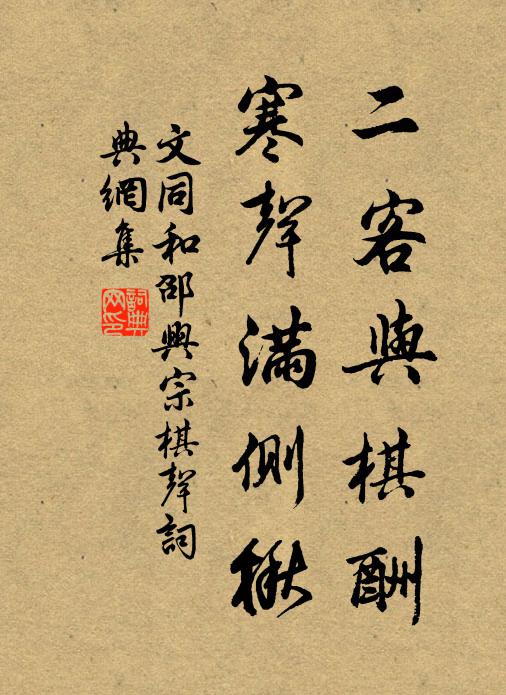 二客與棋酬
寒聲滿側楸
文同和邵興宗棋聲詞
典網集
詞典
網印